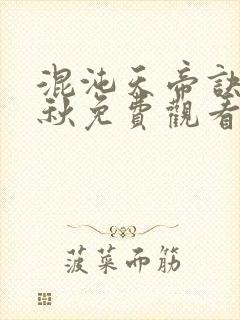 混沌天帝訣
秋免費觀看
菠菜而筋